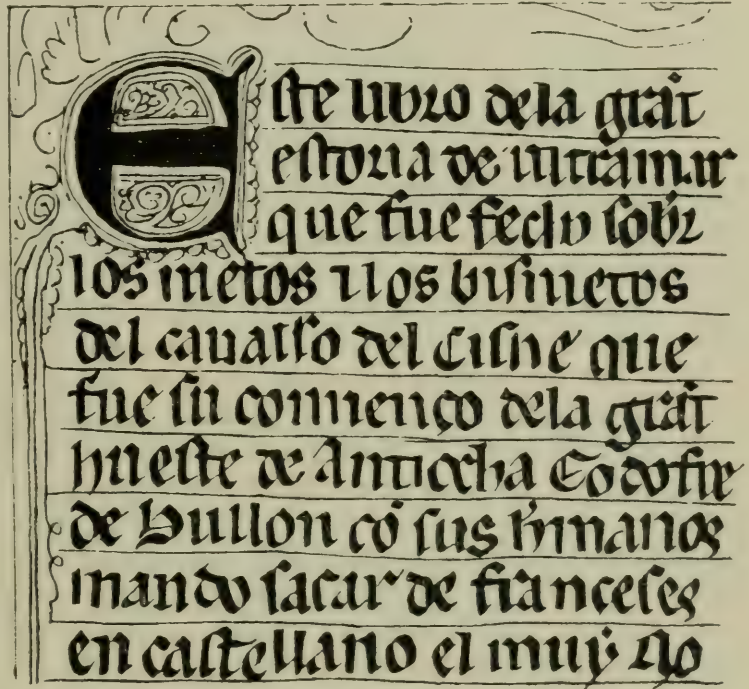 Este libro dela grãt
estoria de ultramar
que fue fecho sobr
los nietos ⁊ los bisnietos
del cauallo del Cisne que
fue su comienço dela grãt
hueste de Antiocha Godofre
de Bullon cõ sus hrmanos
mando sacar de françeses
en castellano el muy